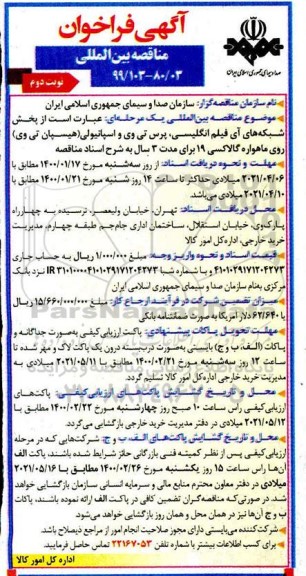 آگهی فراخوان
مناقصه بین المللی
۹۹/۱۰۳-۸۰/۰۳
نوبت دوم
صدا و سیمای جمهوری اسلامی ایران
نام سازمان مناقصه‌گزار: سازمان صدا و سیمای جمهوری اسلامی ایران
موضوع مناقصه بین‌المللی یک مرحله‌ای: عبارت است از پخش
شبکه‌های آی فیلم انگلیسی، پرس تی وی و اسپانیولی (هیسپان تی وی)
روی ماهواره گالاکسی ۱۹ برای مدت ۳ سال به شرح اسناد مناقصه
مهلت و نحوه دریافت اسناد: از روز سه‌شنبه مورخ ۱۴۰۰/۰۱/۱۷ مطابق با
۲۰۲۱/۰۴/۰۶ میلادی حداکثر تا ساعت ۱۴ روز شنبه مورخ ۱۴۰۰/۰۱/۲۱ مطابق با
۲۰۲۱/۰۴/۱۰ میلادی می‌باشد
محل دریافت اسناد: تهران، خیابان ولیعصر، نرسیده به چهارراه
پارک‌وی، خیابان استقلال، ساختمان اداری جام‌جم طبقه چهارم، مدیریت
خرید خارجی، اداره کل امور کالا
قیمت اسناد و نحوه واریز وجه: مبلغ ۱/۰۰۰/۰۰۰ ریال به حساب جاری
۴۱۰۱۰۲۹۱۷۱۲۰۴۲۷۳ و با شماره شبا IR ۳۱۰۱۰۰۰۰۴۱۰۱۰۲۹۱۷۱۲۰۴۲۷۳ نزد بانک
مرکزی به‌نام سازمان صدا و سیمای جمهوری اسلامی ایران
میزان تضمین شرکت در فرآیند ارجاع کار: مبلغ ۱۵/۶۶۰/۰۰۰/۰۰۰ ریال یا
۶۲/۶۴۰ دلار آمریکا به صورت ضمانتنامه بانکی
مهلت تحویل پاکات پیشنهادی: پاکت ارزیابی کیفی به‌صورت جداگانه و
پاکات (الف، ب و ج) بایستی به‌صورت دربسته درون یک پاکت لاک و مهر شده تا
ساعت ۱۲ روز سه‌شنبه مورخ ۱۴۰۰/۰۲/۲۱ مطابق با ۲۰۲۱/۰۵/۱۱ میلادی به
مدیریت خرید خارجی اداره کل امور کالا تسلیم گردد.
محل و تاریخ گشایش پاکت‌های ارزیابی کیفی: پاکت‌های
ارزیابی کیفی رأس ساعت ۱۰ صبح روز چهارشنبه مورخ ۱۴۰۰/۰۲/۲۲ مطابق با
۲۰۲۱/۰۵/۱۲ میلادی در دفتر مدیریت خرید خارجی بازگشایی می‌گردد.
محل و تاریخ گشایش پاکت‌های الف، ب و ج: شرکت‌هایی که در مرحله
ارزیابی کیفی پس از نظر کمیته فنی بازرگانی حائز شرایط شده باشند، پاکت الف
آن‌ها راس ساعت ۱۵ روز یکشنبه مورخ ۱۴۰۰/۰۲/۲۶ مطابق با ۲۰۲۱/۰۵/۱۶
میلادی در دفتر معاون محترم منابع مالی و سرمایه انسانی سازمان بازگشایی خواهد
شد. در صورتی‌که مناقصه‌گران تضمین کافی در پاکت الف ارائه نموده باشند، پاکات
ب و ج آن‌ها نیز در همان محل و همان روز بازگشایی خواهد شد.
شرکت کننده می‌بایستی دارای مجوز صلاحیت انجام امور از مراجع ذیصلاح باشد.
برای کسب اطلاعات بیشتر با شماره تلفن ۲۲۱۶۷۰۵۳ تماس حاصل فرمایید.
اداره کل امور کالا